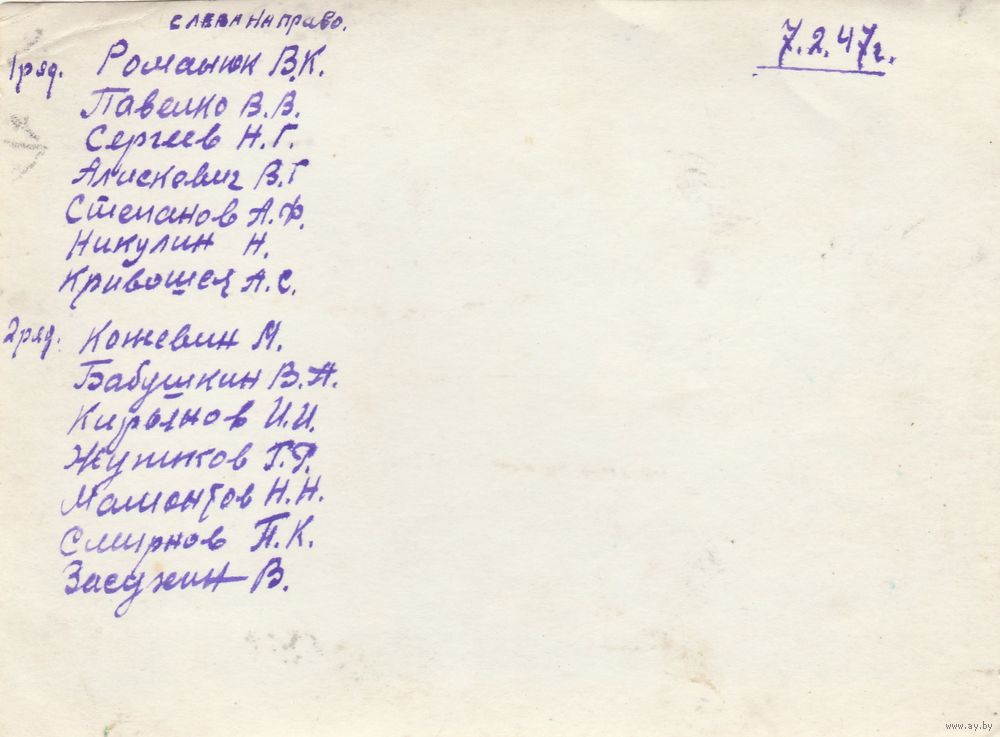 слева направо.
7.2.47г.
1 ряд. Романюк В.К.
Павелко В.В.
Сергеев Н.Г.
Алискевич В.Г
Степанов А.Ф.
Никулин Н.
Кривошея А.С.
2 ряд. Кожевин М.
Бабушкин В.А.
Кирьянов И.И.
Г.Г.
Мамонтов Н.Н.
Смирнов П.К.
Засухин В.
www.ay.by